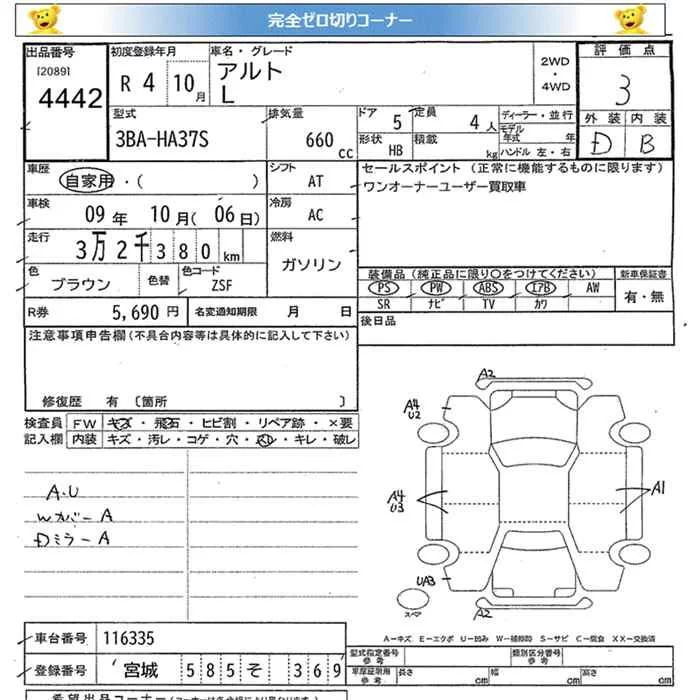 完全ゼロ切りコーナー
出品番号
[2089]
4442
初度登録年月
R 4 10 月
車名・グレード
アルト
L
2WD
・
4WD
評価点
3
外装 内装
D B
型式
3BA-HA37S
排気量
660 cc
ドア 5
定員 4 人
形状 HB
積載 kg
ディーラー・並行
モデル年式 年
ハンドル 左・右
車歴
自家用・( )
シフト
AT
セールスポイント (正常に機能するものに限ります)
ワンオーナーユーザー買取車
車検
09 年 10 月 (06 日)
冷房
AC
走行
3万2千380 km
燃料
ガソリン
色
ブラウン
色替
色コード
ZSF
装備品 (純正品に限り○をつけてください)
新車保証書
PS PW ABS エアB AW
有・無
SR ナビ TV カワ
R券 5,690 円
名変通知期限 月 日
後日品
注意事項申告欄 (不具合内容等は具体的に記入して下さい)
修復歴 有 〔箇所 〕
検査員
記入欄
FW キズ・飛石・ヒビ割・リペア跡・×要
内装 キズ・汚レ・コゲ・穴・スレ・キレ・破レ
A.U
Wカバー A
Dミラー A
A2
A4
U2
A4
U3
A1
UA3
スペア
A2
A-キズ E-エクボ U-凹み W-補修跡 S-サビ C-腐食 XX-交換済
車台番号 116335
登録番号 宮城 585 そ 369
型式指定番号
参考
類別区分番号
参考
車庫証明用
参考
長さ 幅 高さ
cm cm cm
希望出品コーナー